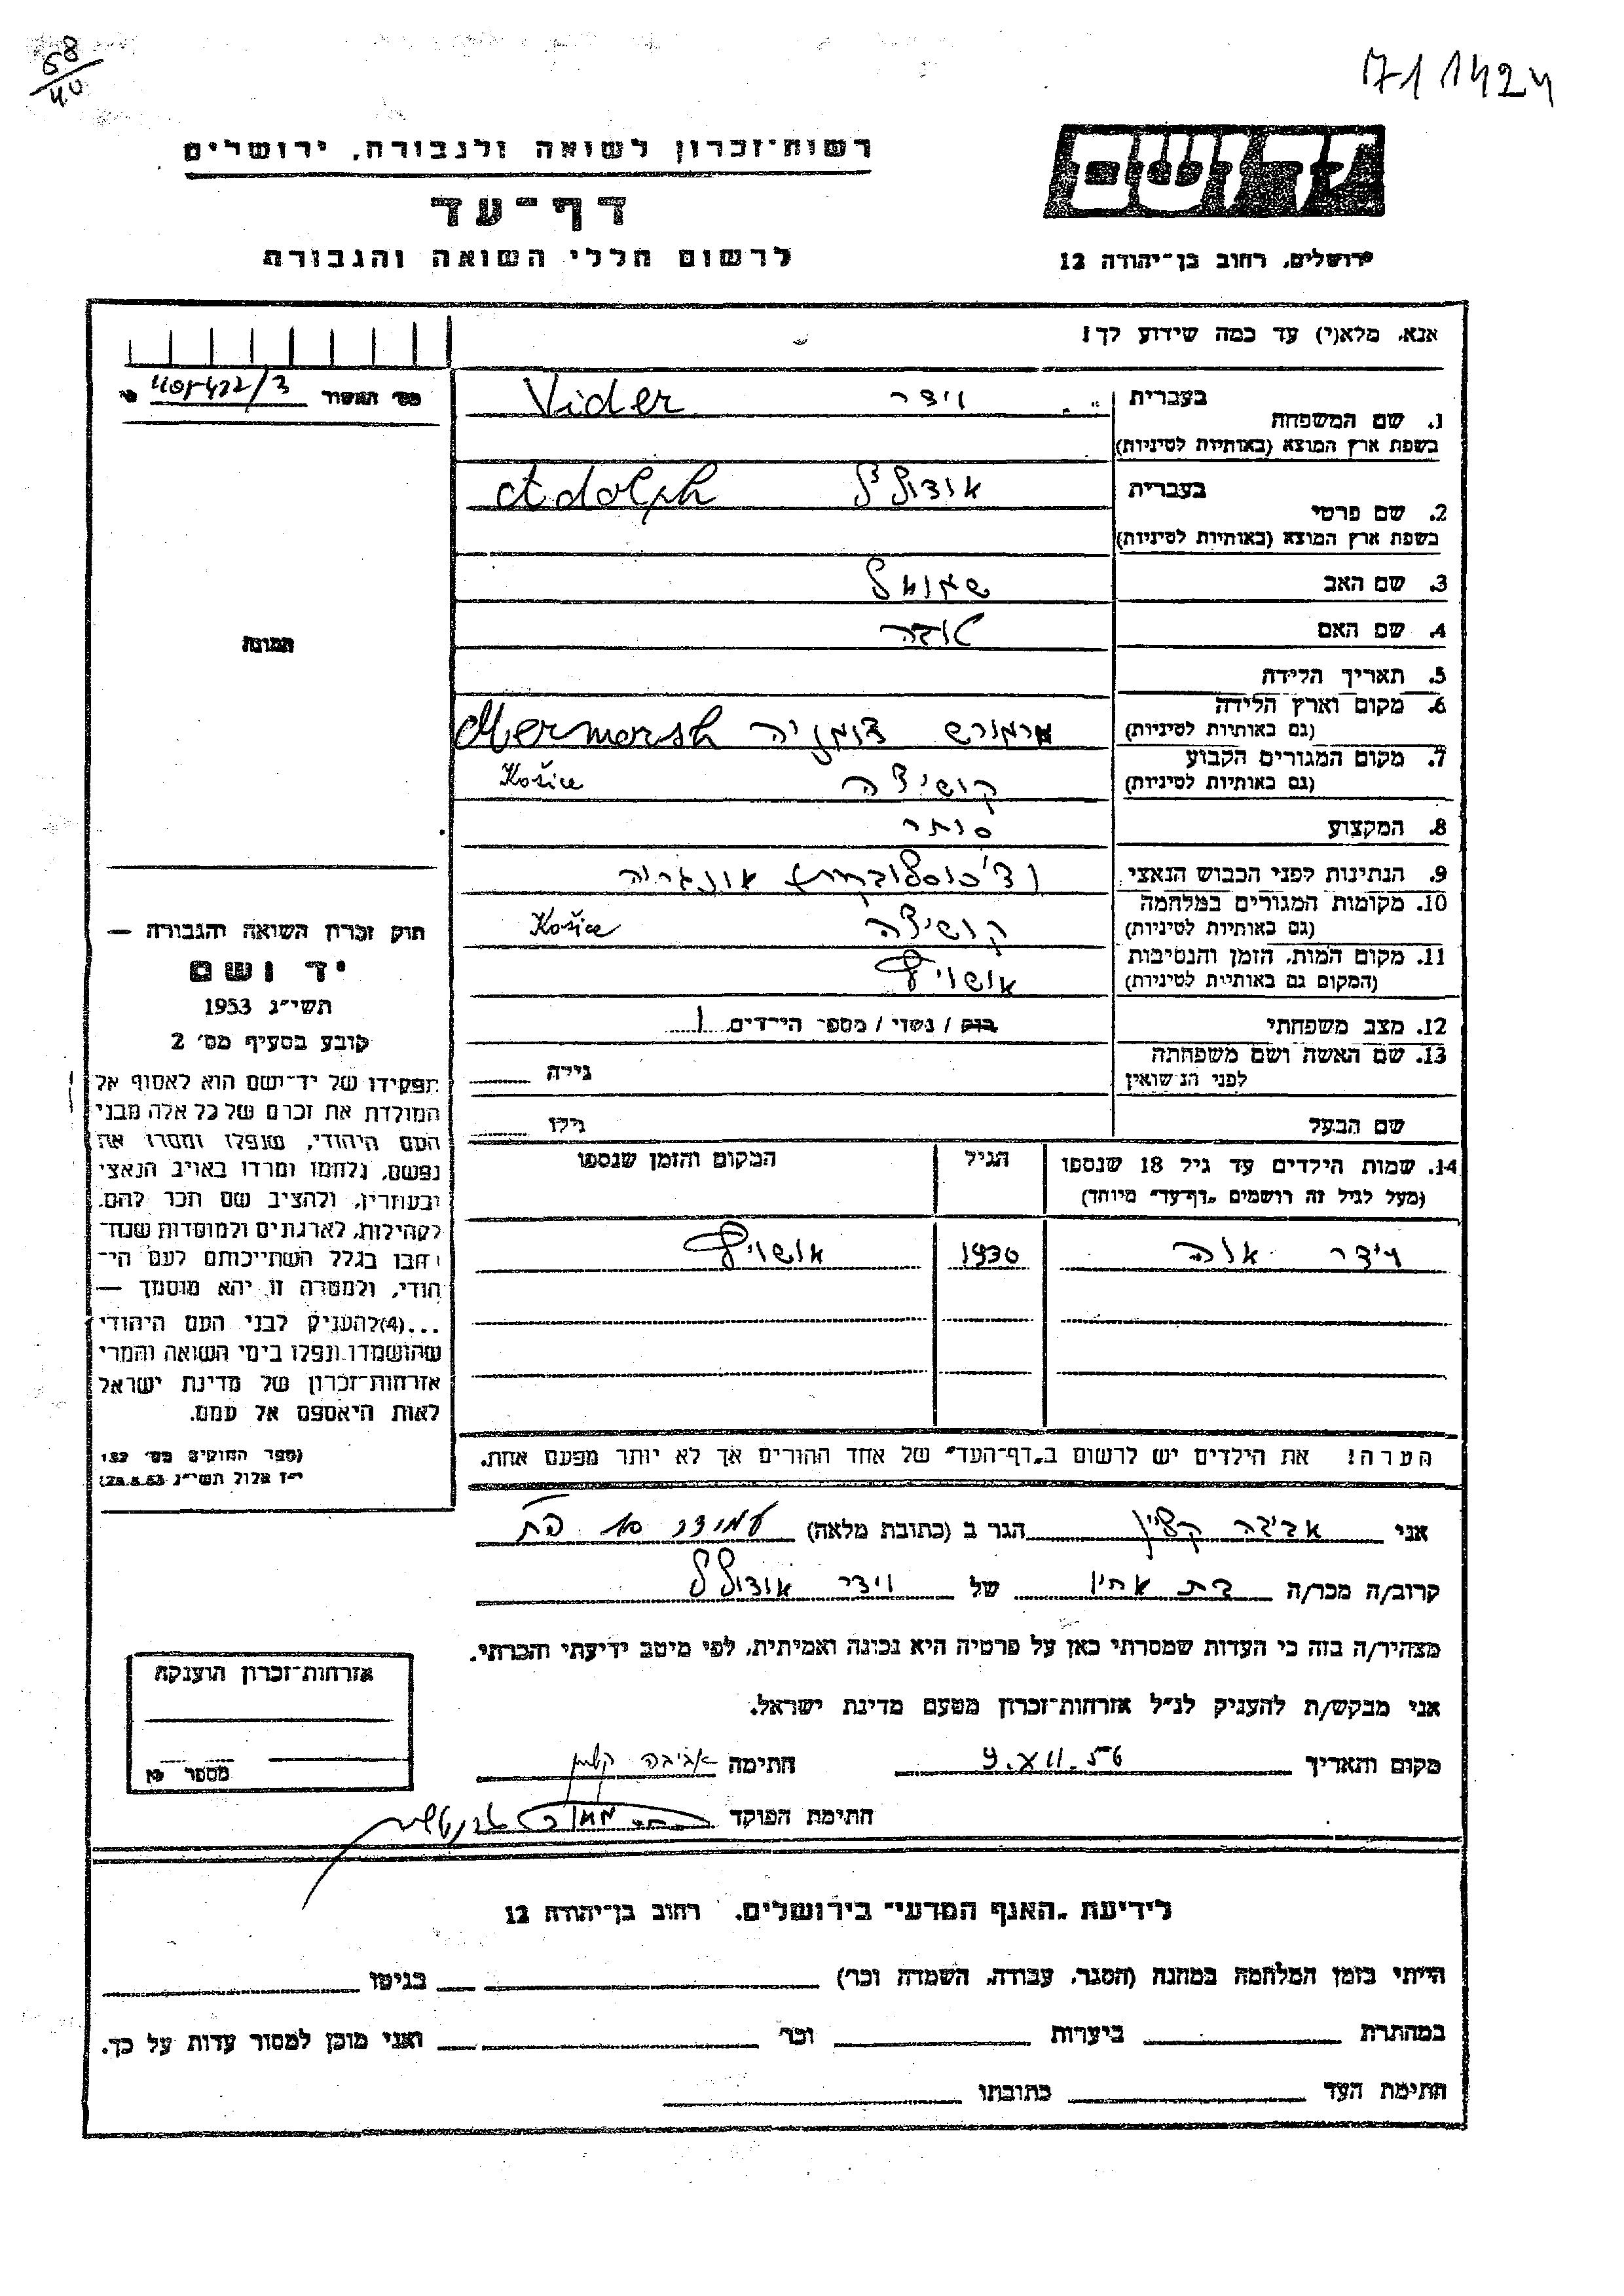 68/40
711424
רשות-זכרון לשואה ולגבורה, ירושלים
דף-עד
לרשום חללי השואה והגבורה
ירושלים, רחוב בן-יהודה 12
אנא, מלא(י) עד כמה שידוע לך!
מס' האשור
בעברית וידר Vider
1. שם המשפחה
בשפת ארץ המוצא (באותיות לטיניות)
בעברית אודולף Adolph
2. שם פרטי
בשפת ארץ המוצא (באותיות לטיניות)
3. שם האב שמואל
4. שם האם
5. תאריך הלידה
6. מקום וארץ הלידה
(גם באותיות לטיניות) מרמורש רומניה Mermorsh
7. מקום המגורים הקבוע
(גם באותיות לטיניות) קושיצה Košice
8. המקצוע סוחר
9. הנתינות לפני הכבוש הנאצי אונגריה
10. מקומות המגורים במלחמה
(גם באותיות לטיניות) קושיצה Košice
11. מקום המות, הזמן והנסיבות
(המקום גם באותיות לטיניות) אושויץ
12. מצב משפחתי רווק / נשוי / מספר הילדים 1
13. שם האשה ושם משפחתה
לפני הנישואין גילה
שם הבעל גילו
14. שמות הילדים עד גיל 18 שנספו הגיל המקום והזמן שנספו
(מעל לגיל זה רושמים "דף-עד" מיוחד)
וידר 1930 אושויץ
הערה! את הילדים יש לרשום ב"דף-העד" של אחד ההורים אך לא יותר מפעם אחת.
תמונה
חוק זכרון השואה והגבורה —
יד ושם
תשי"ג 1953
קובע בסעיף מס' 2
תפקידו של יד-ושם הוא לאסוף אל
המולדת את זכרם של כל אלה מבני
העם היהודי, שנפלו ומסרו את
נפשם, נלחמו ומרדו באויב הנאצי
ובעוזריו, ולהציב שם וזכר להם,
לקהילות, לארגונים ולמוסדות שנח-
רבו בגלל השתייכותם לעם הי-
הודי, ולמטרה זו יהא מוסמך —
...(4) להעניק לבני העם היהודי
שהושמדו ונפלו בימי השואה והמרי
אזרחות-זכרון של מדינת ישראל
לאות היאספם אל עמם.
(ספר החוקים מס' 132
י"ז אלול תשי"ג 28.8.53)
אני אביבה קליין הגר ב (כתובת מלאה)
קרוב/ה מכר/ה בת אחיו של וידר אודולף
מצהיר/ה בזה כי העדות שמסרתי כאן על פרטיה היא נכונה ואמיתית, לפי מיטב ידיעתי והכרתי.
אני מבקש/ת להעניק לנ"ל אזרחות-זכרון מטעם מדינת ישראל.
מקום ותאריך חתימה אביבה קליין
חתימת הפוקד
אזרחות-זכרון הוענקה
מספר
לידיעת "האגף המדעי" בירושלים, רחוב בן-יהודה 12
הייתי בזמן המלחמה במחנה (הסגר, עבודה, השמדה וכו') בגיטו
במחתרת ביערות וכו' ואני מוכן למסור עדות על כך.
חתימת העד כתובתו